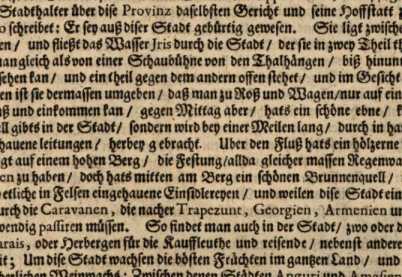 Stadthalter über dise Provinz daselbsten Gericht und seine Hoffstatt
schreibet: Er sey auß diser Stadt gebürtig gewesen. Sie ligt zwische
en / und fließt das Wasser Iris durch die Stadt / der sie in zwey Theil th
man gleich als von einer Schaubühne von den Thalhängen / biß hinun
sehen kan / und ein theil gegen dem andern offen stehet / und im Gesicht
en ist sie dermassen umgeben / daß man zu Roß und Wagen / nur auf ein
uß und einkommen kan / gegen Mittag aber / hats ein schöne ebne / k
ll gibts in der Stadt / sondern wird bey einer Meilen lang / durch in ha
hauene leitungen / herbey gebracht. Uber den Fluß hats ein hölzerne
igt auf einem hohen Berg / die Festung / allda gleicher massen Regenwa
en zu haben / doch hats mitten am Berg ein schönen Brunnenquell /
etliche in Felsen eingehauene Einsidlereyen / und weilen dise Stadt ein
urch die Caravanen, die nacher Trapezunt, Georgien, Armenien un
wendig passiren müssen. So findet man auch in der Stadt / zwo oder d
arais, oder Herbergen für die Kauffleuthe und reisende / nebenst andere
it; Um dise Stadt wachsen die bästen Früchten im gantzen Land / und
herlichen Weinwachs: Zwischen denen Städten